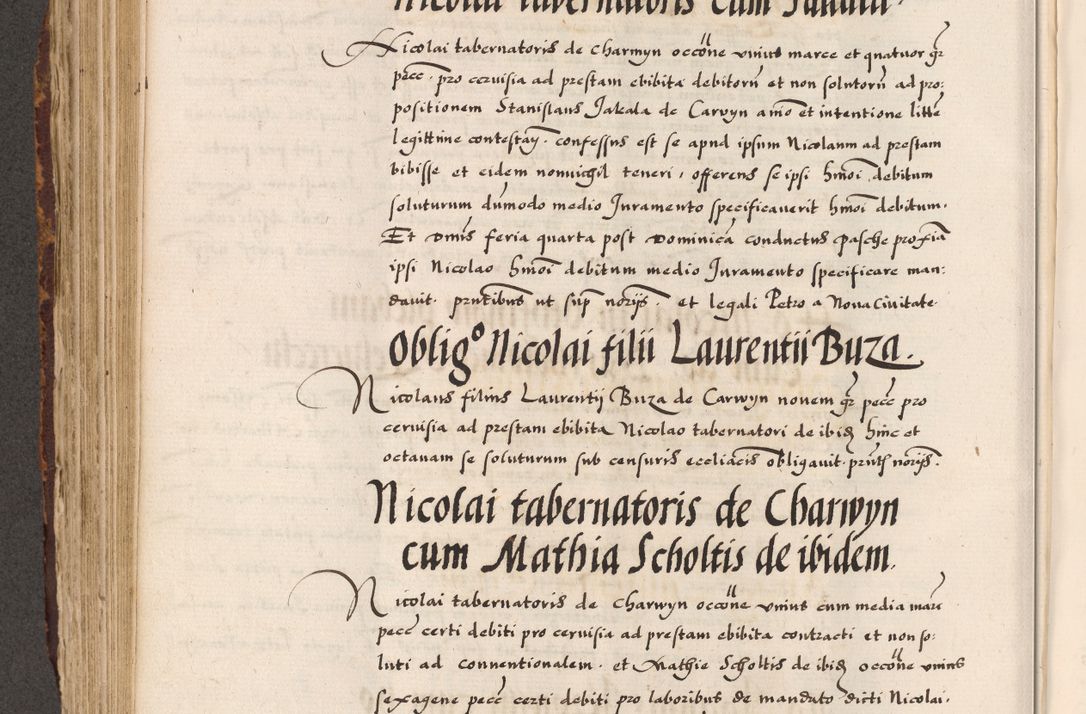 Nicolai tabernatoris cum Jakala.
Nicolai tabernatoris de Charwyn occōne vnius marce et quatuor gr̄
pecc̄. pro ceruisia ad prestam ebibita debitorū et non solutorū ad pro:
positionem Stanislaus Jakala de Carvyn aīmo et intentione littē
legittime contestan̄. confessus est se apud ipsum Nicolaum ad prestam
bibisse et eidem teneri, offerens se ipsi hm̄oi debitum
soluturum dūmodo medio Juramento specificauerit hm̄oi debitum.
Et Dn̄us feria quarta post Dominicā conductus pasche proxiā
ipsi Nicolao hm̄oi debitum medio Juramento specificare man-
dauit. pn̄tibus ut sup̄ norijs. et legali Petro a Noua Ciuitate
Oblig° Nicolai filii Laurentii Buza.
Nicolaus filius Laurentij Buza de Carwyn nouem gr̄ pecc̄ pro
ceruisia ad prestam ebibita Nicolao tabernatori de ibid hinc et
octauam se soluturum sub censuris eccliacis obligauit. pn̄t norijs.
Nicolai tabernatoris de Charwyn
cum Mathia Scholtis de ibidem.
Nicolai tabernatoris de Charwyn occōne vnius cum media marc̄
pecc̄ certi debiti pro ceruisia ad prestam ebibita contracti et non so:
luti ad conuentionalem. et Mathie Scholtis de ibid occōne vnius
sexagene pecc̄ certi debiti pro laboribus de mandato dicti Nicolai.